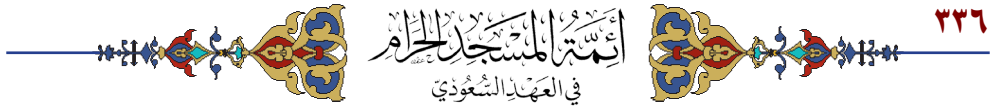 ٣٣٦
أَئِمَّةُ المَسْجِدِ الحَرَامِ
في العَهْدِ السُّعُوْدِيّ